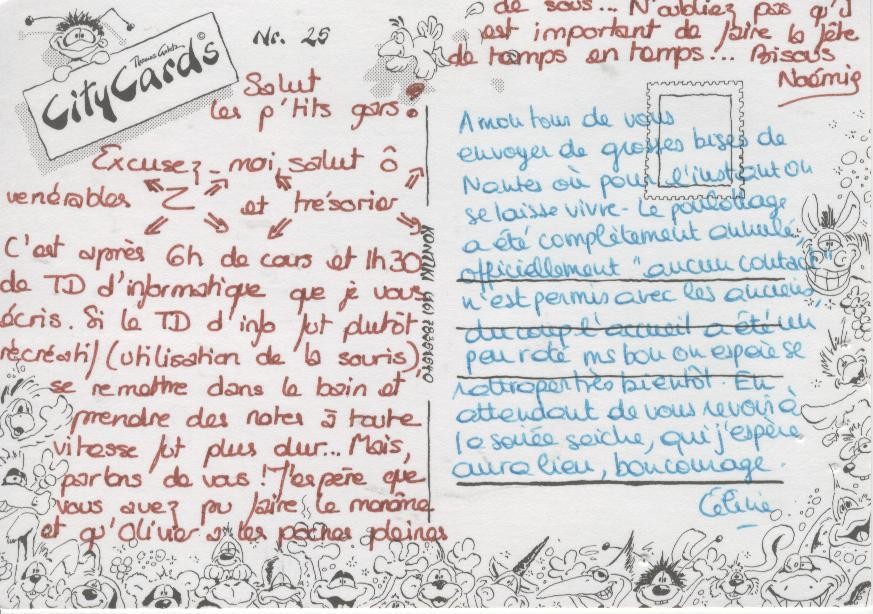 Thomas Gulitz ©
CityCards
Nr. 25
Salut
les p'tits gars !
Excusez-moi, salut ô
vénérables Z et trésorier
C'est après 6h de cours et 1h30
de TD d'informatique que je vous
écris. Si le TD d'info fut plutôt
récréatif (utilisation de la souris),
se remettre dans le bain et
prendre des notes à toute
vitesse fut plus dur... Mais,
parlons de vous ! J'espère que
vous avez pu faire le monôme
et qu'Olivier a les poches pleines
de sous... N'oubliez pas qu'il
est important de faire la fête
de temps en temps... Bisous
Noémie
A mon tour de vous
envoyer de grosses bises de
Nantes où pour l'instant on
se laisse vivre - Le poulottage
a été complètement annulé,
officiellement "aucun contact"
n'est permis avec les anciens,
du coup l'accueil a été un
peu raté ms bon on espère se
rattraper très bientôt. En
attendant de vous revoir à
la soirée seiche, qui j'espère
aura lieu, bon courage.
Céline
KONTIKI